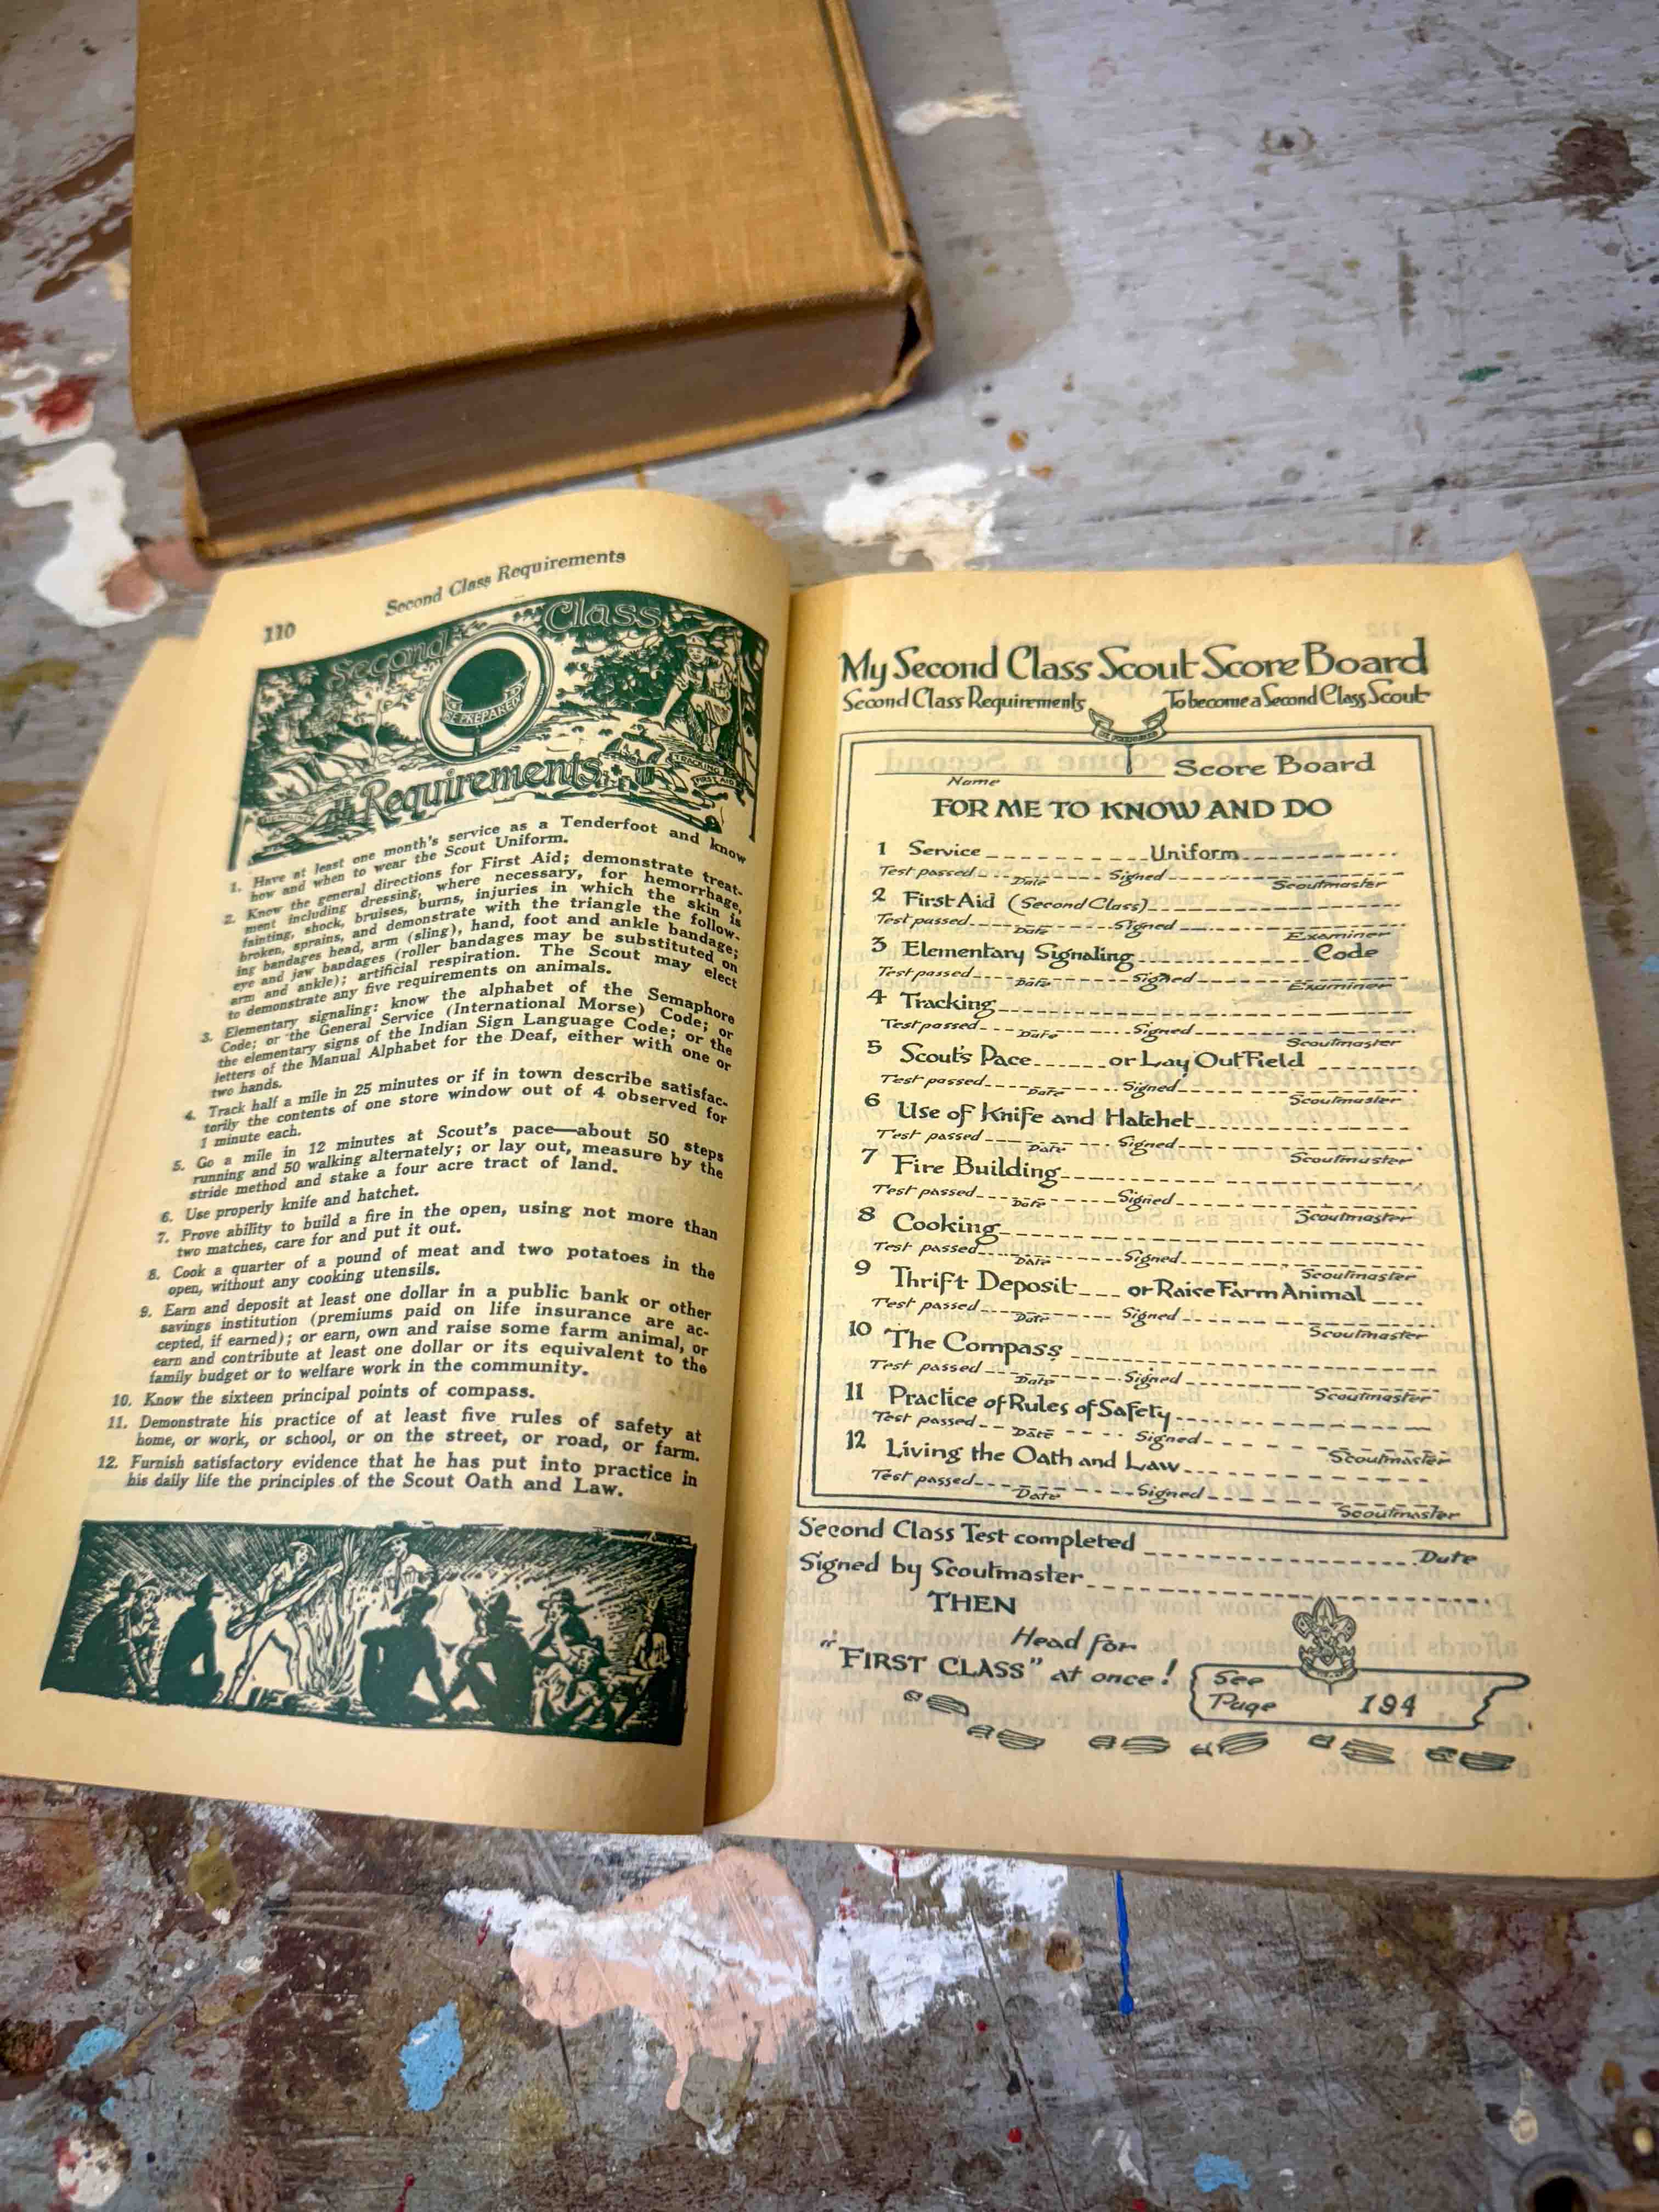 110
Second Class Requirements
Second Class
BE PREPARED
TRACKING
FIRST AID
Requirements
1. Have at least one month's service as a Tenderfoot and know
how and when to wear the Scout Uniform.
2. Know the general directions for First Aid; demonstrate treat-
ment including dressing, where necessary, for hemorrhage,
fainting, shock, bruises, burns, injuries in which the skin is
broken, sprains, and demonstrate with the triangle the follow-
ing bandages head, arm (sling), hand, foot and ankle bandage;
eye and jaw bandages (roller bandages may be substituted on
arm and ankle); artificial respiration. The Scout may elect
to demonstrate any five requirements on animals.
3. Elementary signaling: know the alphabet of the Semaphore
Code; or the General Service (International Morse) Code; or
the elementary signs of the Indian Sign Language Code; or the
letters of the Manual Alphabet for the Deaf, either with one or
two hands.
4. Track half a mile in 25 minutes or if in town describe satisfac-
torily the contents of one store window out of 4 observed for
1 minute each.
5. Go a mile in 12 minutes at Scout's pace—about 50 steps
running and 50 walking alternately; or lay out, measure by the
stride method and stake a four acre tract of land.
6. Use properly knife and hatchet.
7. Prove ability to build a fire in the open, using not more than
two matches, care for and put it out.
8. Cook a quarter of a pound of meat and two potatoes in the
open, without any cooking utensils.
9. Earn and deposit at least one dollar in a public bank or other
savings institution (premiums paid on life insurance are ac-
cepted, if earned); or earn, own and raise some farm animal, or
earn and contribute at least one dollar or its equivalent to the
family budget or to welfare work in the community.
10. Know the sixteen principal points of compass.
11. Demonstrate his practice of at least five rules of safety at
home, or work, or school, or on the street, or road, or farm.
12. Furnish satisfactory evidence that he has put into practice in
his daily life the principles of the Scout Oath and Law.
My Second Class Scout Score Board
Second Class Requirements To become a Second Class Scout
BE PREPARED
Score Board
Name
FOR ME TO KNOW AND DO
1 Service Uniform
Test passed Date Signed Scoutmaster
2 First Aid (Second Class)
Test passed Date Signed Examiner
3 Elementary Signaling Code
Test passed Date Signed Examiner
4 Tracking
Test passed Date Signed Scoutmaster
5 Scout's Pace or Lay Out Field
Test passed Date Signed Scoutmaster
6 Use of Knife and Hatchet
Test passed Date Signed Scoutmaster
7 Fire Building
Test passed Date Signed Scoutmaster
8 Cooking
Test passed Date Signed Scoutmaster
9 Thrift Deposit or Raise Farm Animal
Test passed Date Signed Scoutmaster
10 The Compass
Test passed Date Signed Scoutmaster
11 Practice of Rules of Safety
Test passed Date Signed Scoutmaster
12 Living the Oath and Law
Test passed Date Signed Scoutmaster
Second Class Test completed Date
Signed by Scoutmaster
THEN
Head for
"FIRST CLASS" at once!
See
Page 194